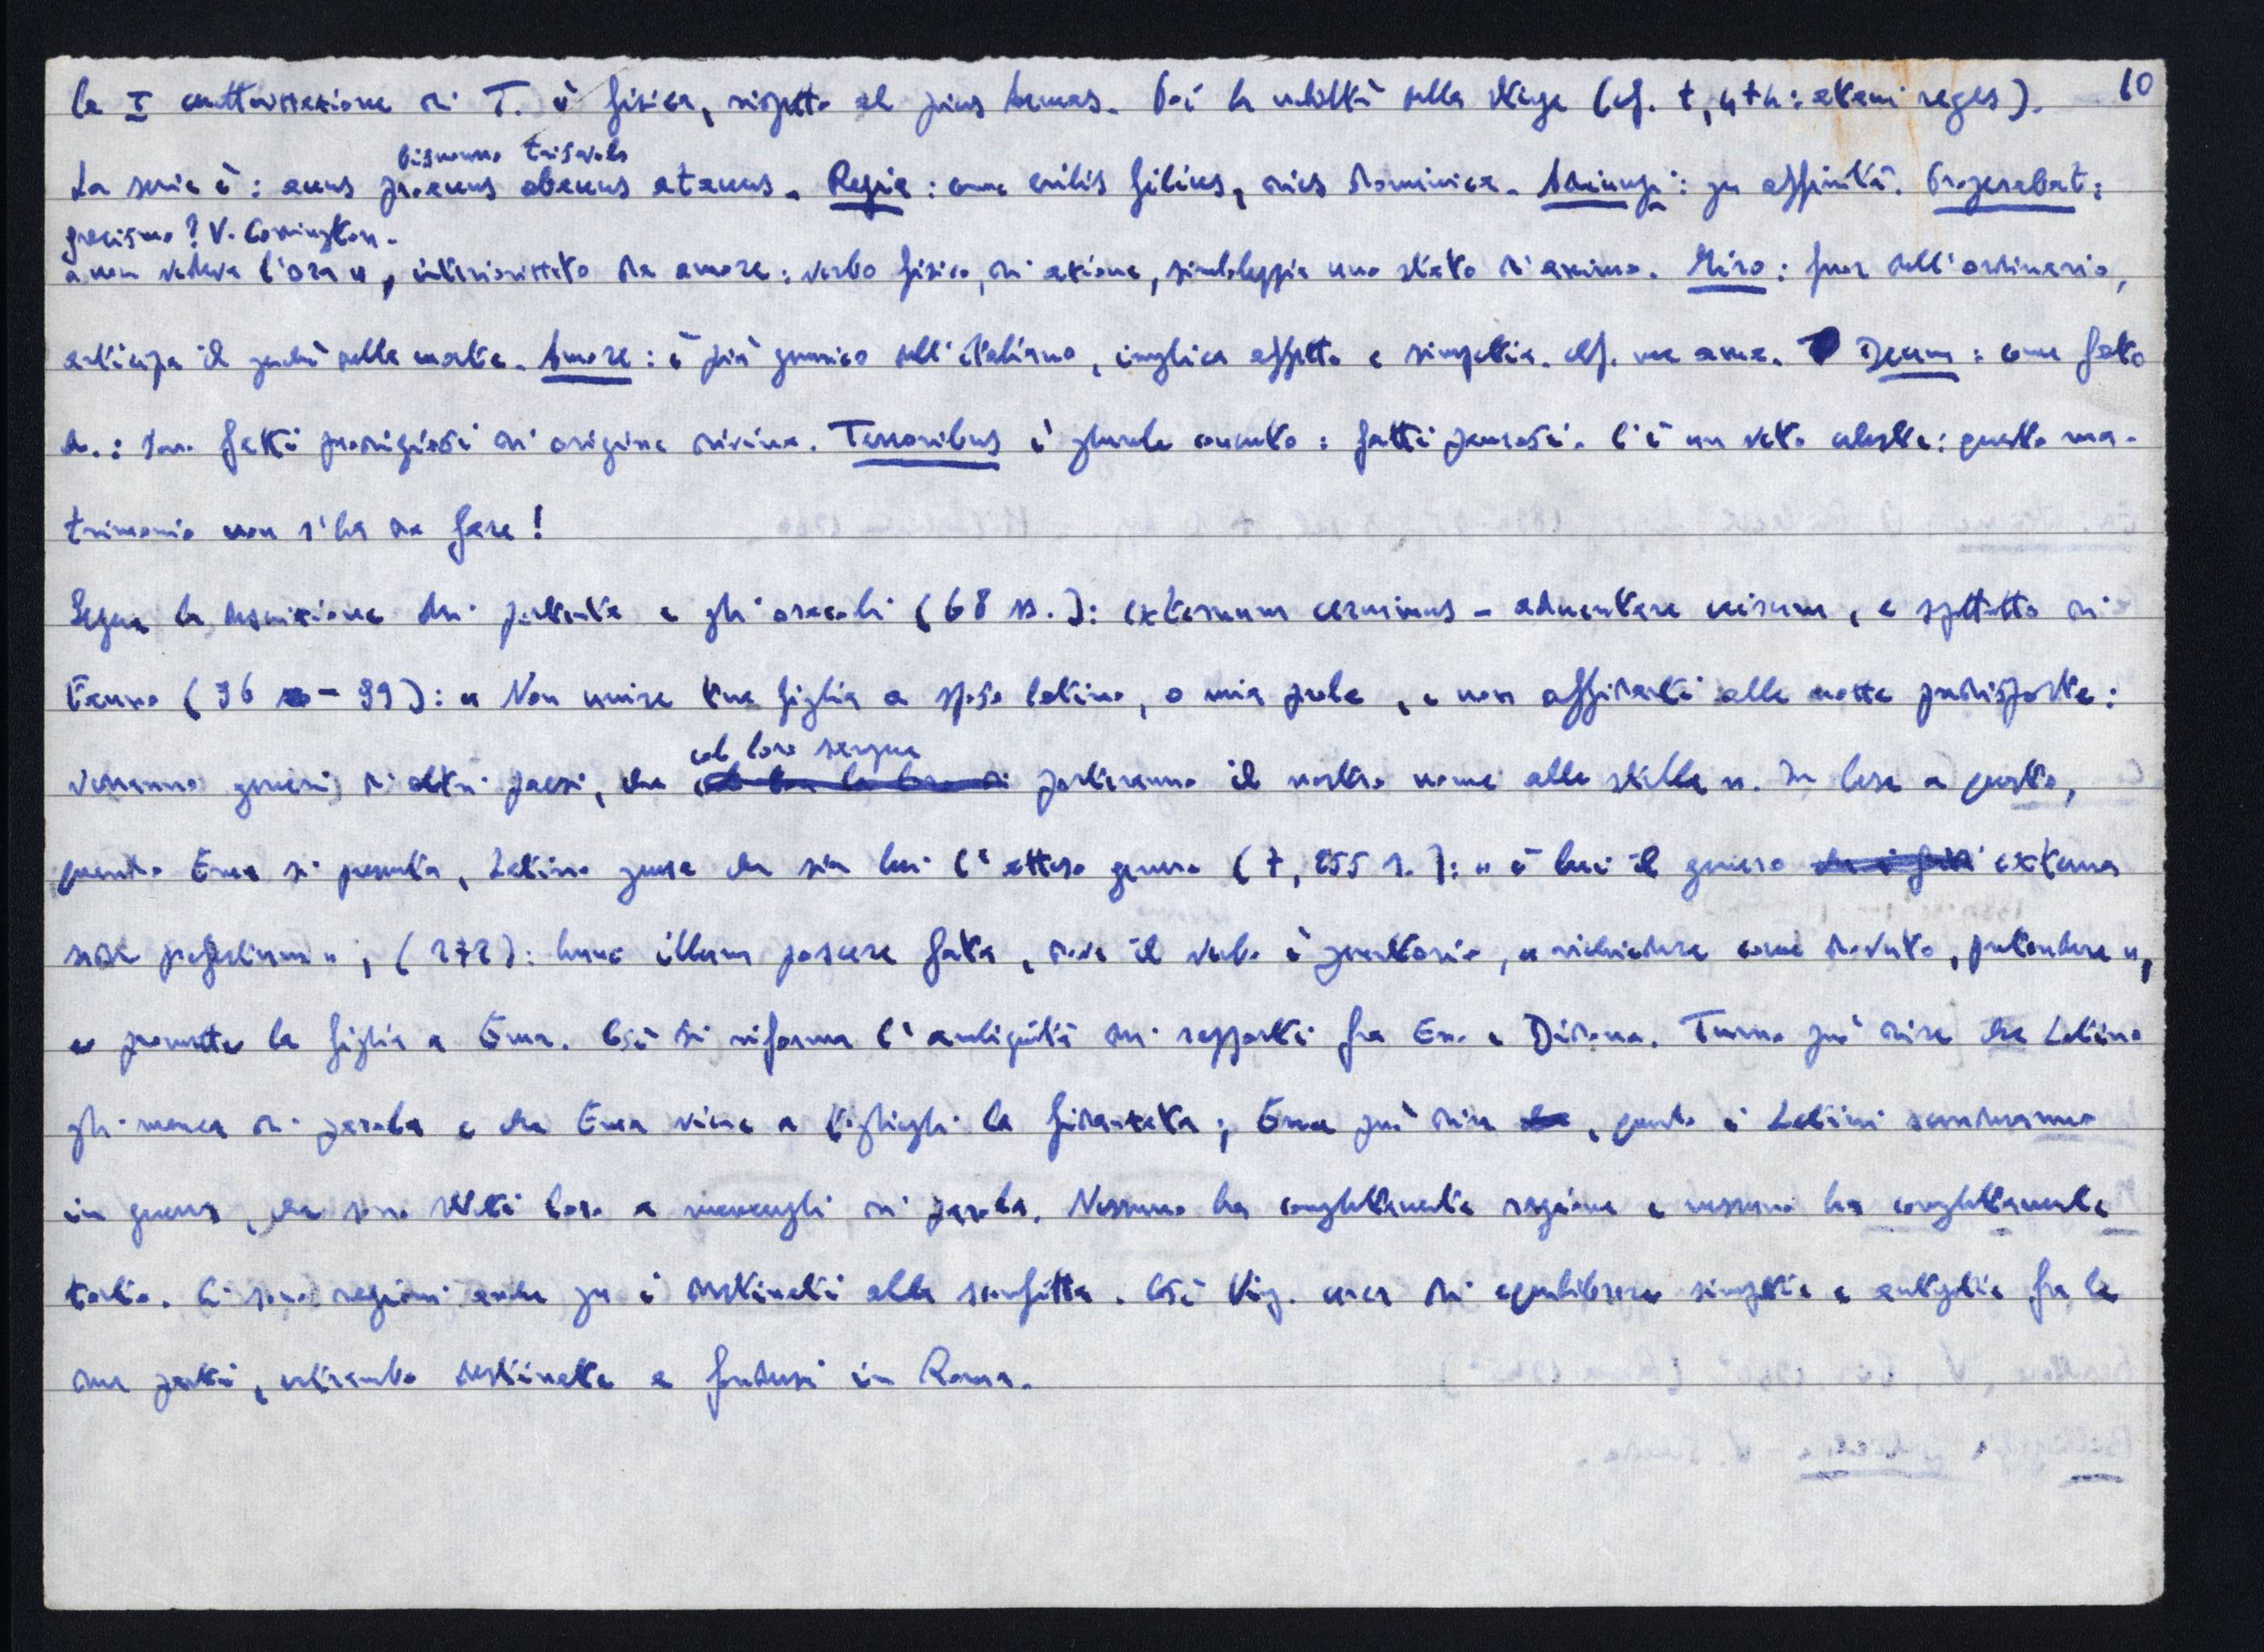 10
la I caratterizzazione di T. è fisica, rispetto al pius Aeneas. Poi la nobiltà della stirpe (cf. 7, 474: atavi reges).
bisnonno trisavolo
La serie è: avus proavus abavus atavus. Regia: come erilis filius, dies dominica. Adiungi: per affinità. Properabat:
grecismo? V. Conington.
« non vedeva l'ora », interiorizzato da amore: verbo fisico, di azione, simboleggia uno stato d'animo. Miro: fuor dell'ordinario,
anticipa il perché della morte. Amore: è più generico dell'italiano, implica affetto e simpatia. Cf. me ama. Deum: come fata
d.: sono fatti prodigiosi di origine divina. Terroribus è plurale concreto: fatti paurosi. C'è un veto celeste: questo ma-
trimonio non s'ha da fare!
Segue la descrizione dei portenti e gli oracoli (68 ss.): externum cernimus - adventare virum, e soprattutto di
Fauno (96 - 99): « Non unire tua figlia a sposo latino, o mia prole, e non affidarti alle nozze predisposte:
col loro sangue
verranno generi d'altri paesi, che porteranno il nostro nome alle stelle ». In base a questo,
quando Enea si presenta, Latino pensa che sia lui l'atteso genero (7, 255 s.): « è lui il genero externa
sede profectum », (272): hunc illum poscere fata, dove il verbo è perentorio, « richiedere come dovuto, pretendere »,
e promette la figlia a Enea. Così si riforma l'ambiguità dei rapporti fra En. e Didone. Turno può dire che Latino
gli manca di parola e che Enea viene a togliergli la fidanzata; Enea può dire, quando i Latini scenderanno
in guerra, che sono stati loro a mancargli di parola. Nessuno ha completamente ragione e nessuno ha completamente
torto. Ci sono ragioni anche per i destinati alla sconfitta. Così Virg. cerca di equilibrare simpatia e antipatia fra le
due parti, entrambe destinate a fondersi in Roma.